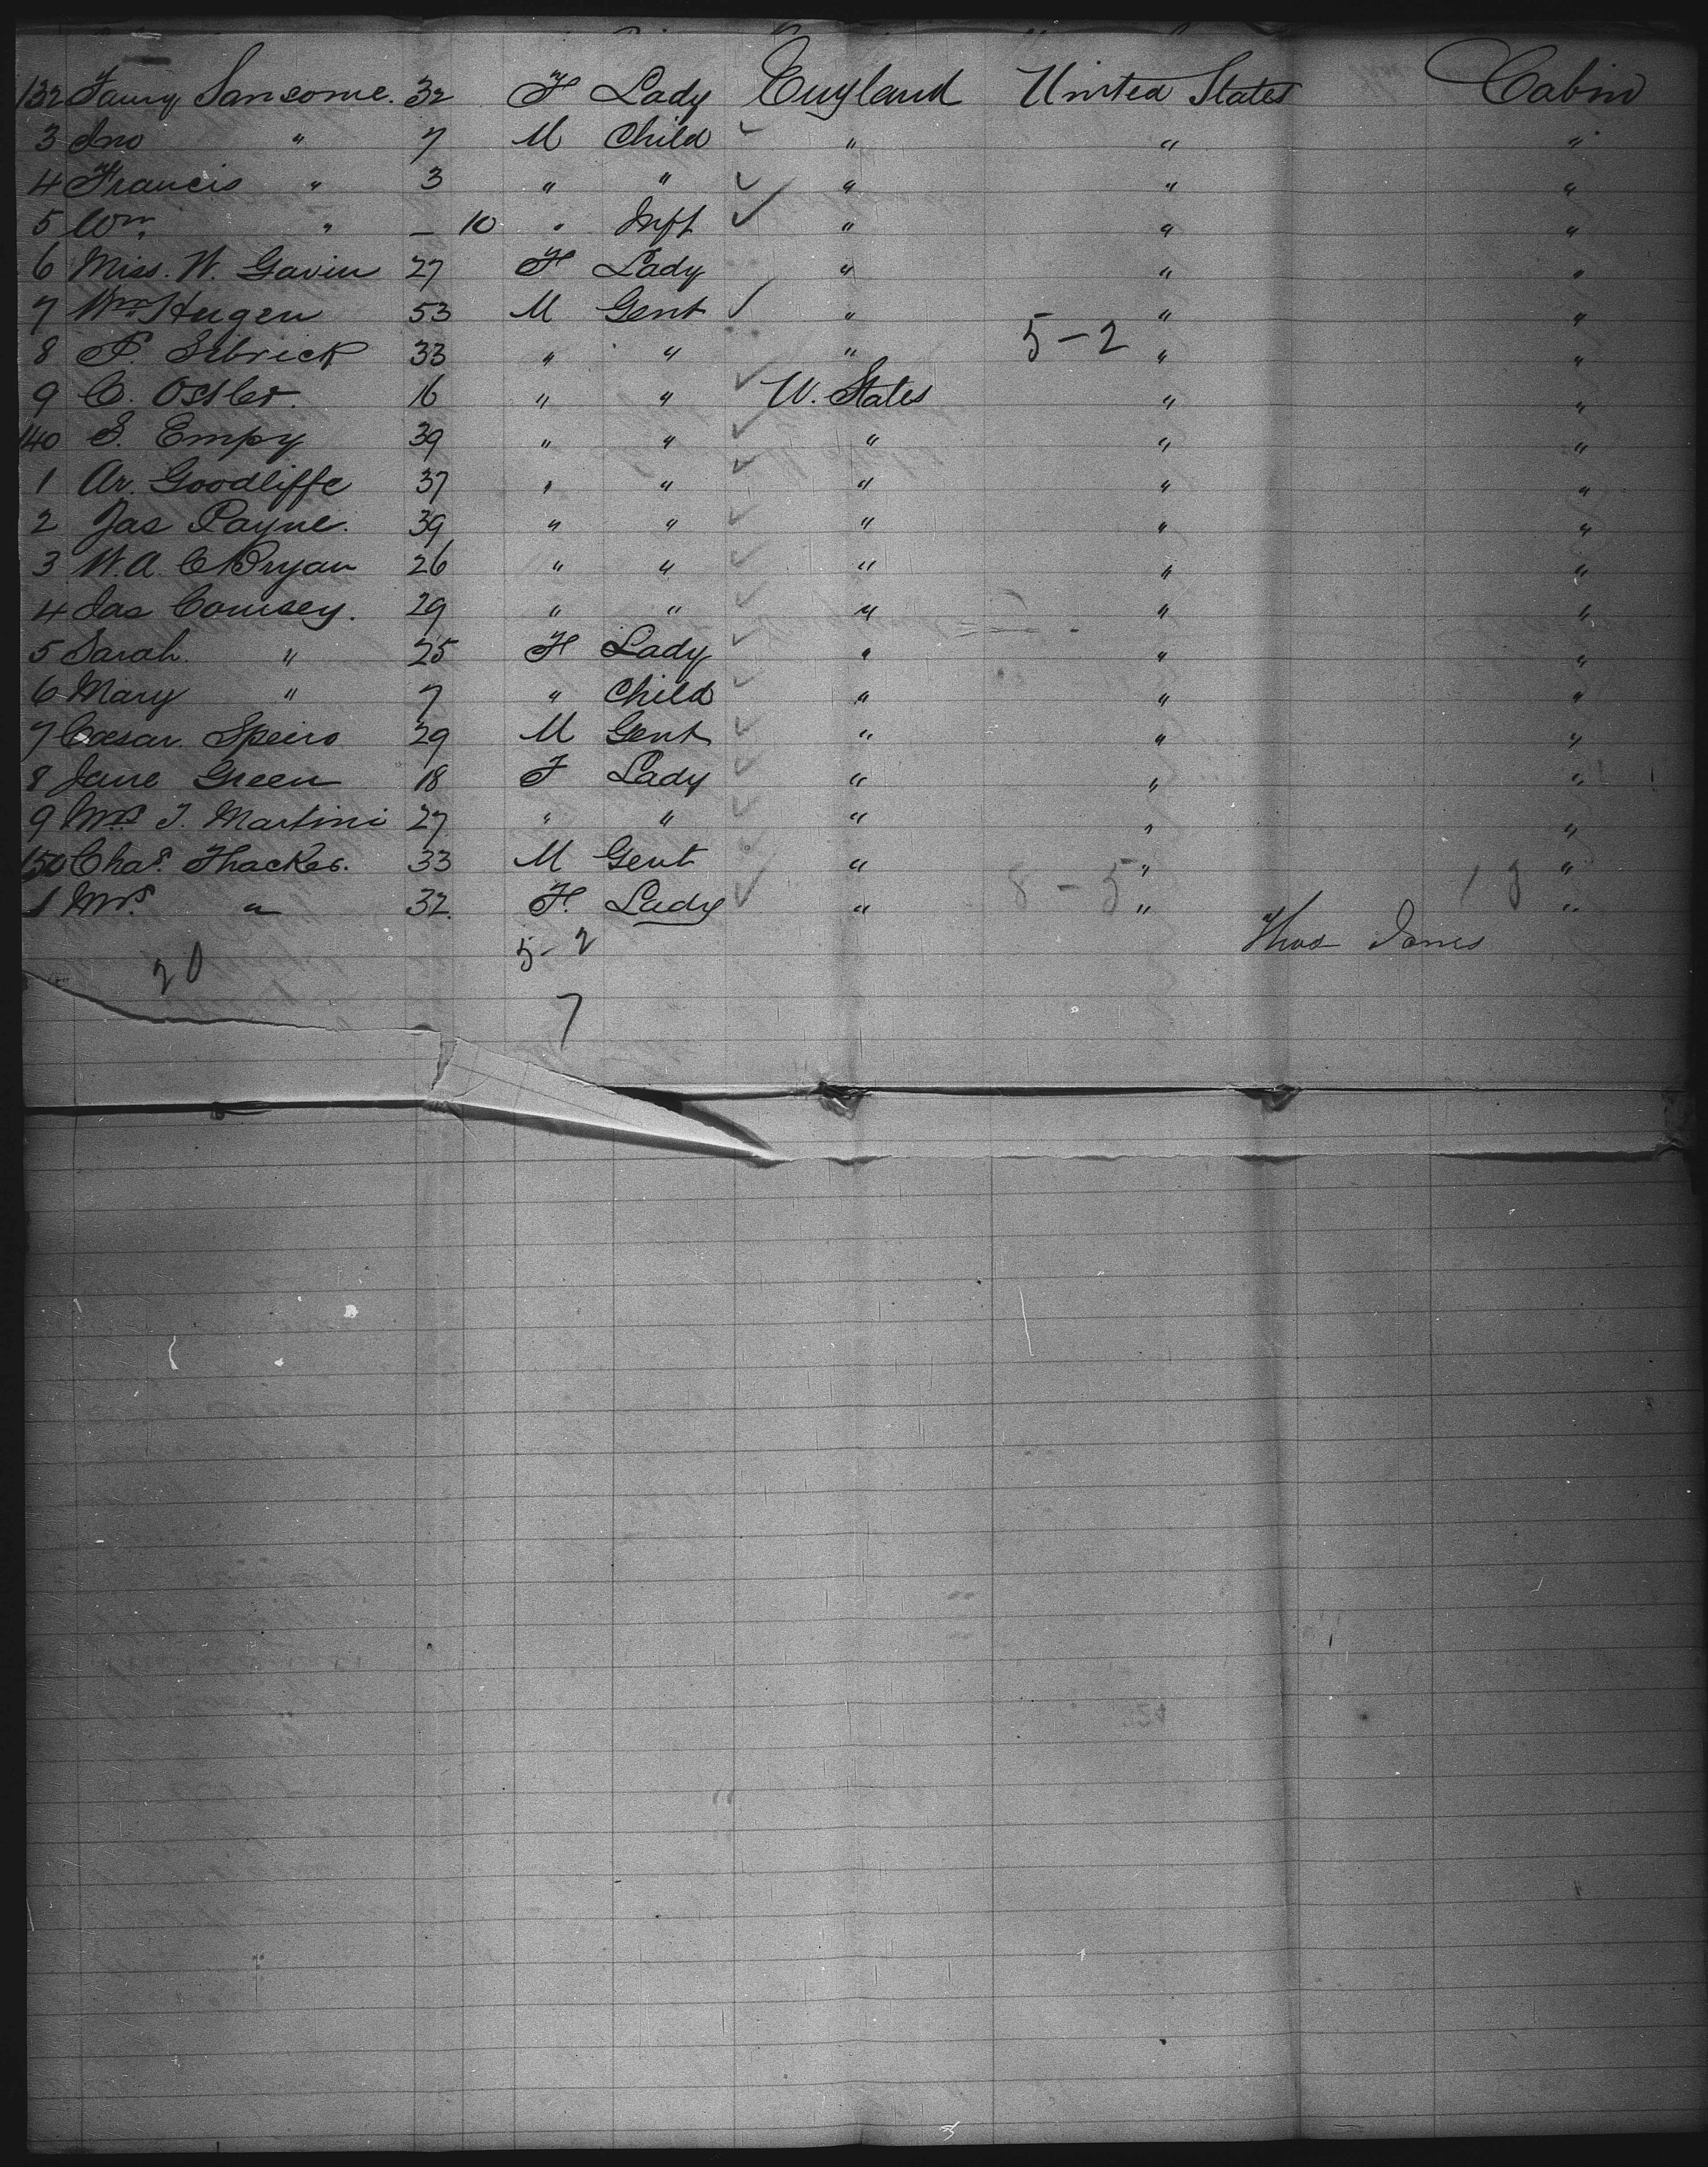 132 Fanny Sansome. 32 F Lady England United States Cabin
3 Jno " 7 M Child " " "
4 Francis " 3 " " " " "
5 Wm. " – 10 " Inft " " "
6 Miss. W. Gavin 27 F Lady " " "
7 Wm Hugen 53 M Gent " " "
8 P. Sibrick 33 " " " 5-2 " "
9 C. Ostler. 16 " " U. States " "
140 S. Empy 39 " " " " "
1 Ar. Goodliffe 37 " " " " "
2 Jas Payne. 39 " " " " "
3 W.A. C Bryan 26 " " " " "
4 Jas Comsey. 29 " " " " "
5 Sarah " 25 F Lady " " "
6 Mary " 7 " Child " " "
7 Cæsar Speiro 29 M Gent " " "
8 Jane Green 18 F Lady " " "
9 Mrs J. Martini 27 " " " " "
150 Chas. Thacker. 33 M Gent " " "
1 Mrs. " 32. F. Lady " 8-5 " 18 "
20 5-2 Thos Jones
7